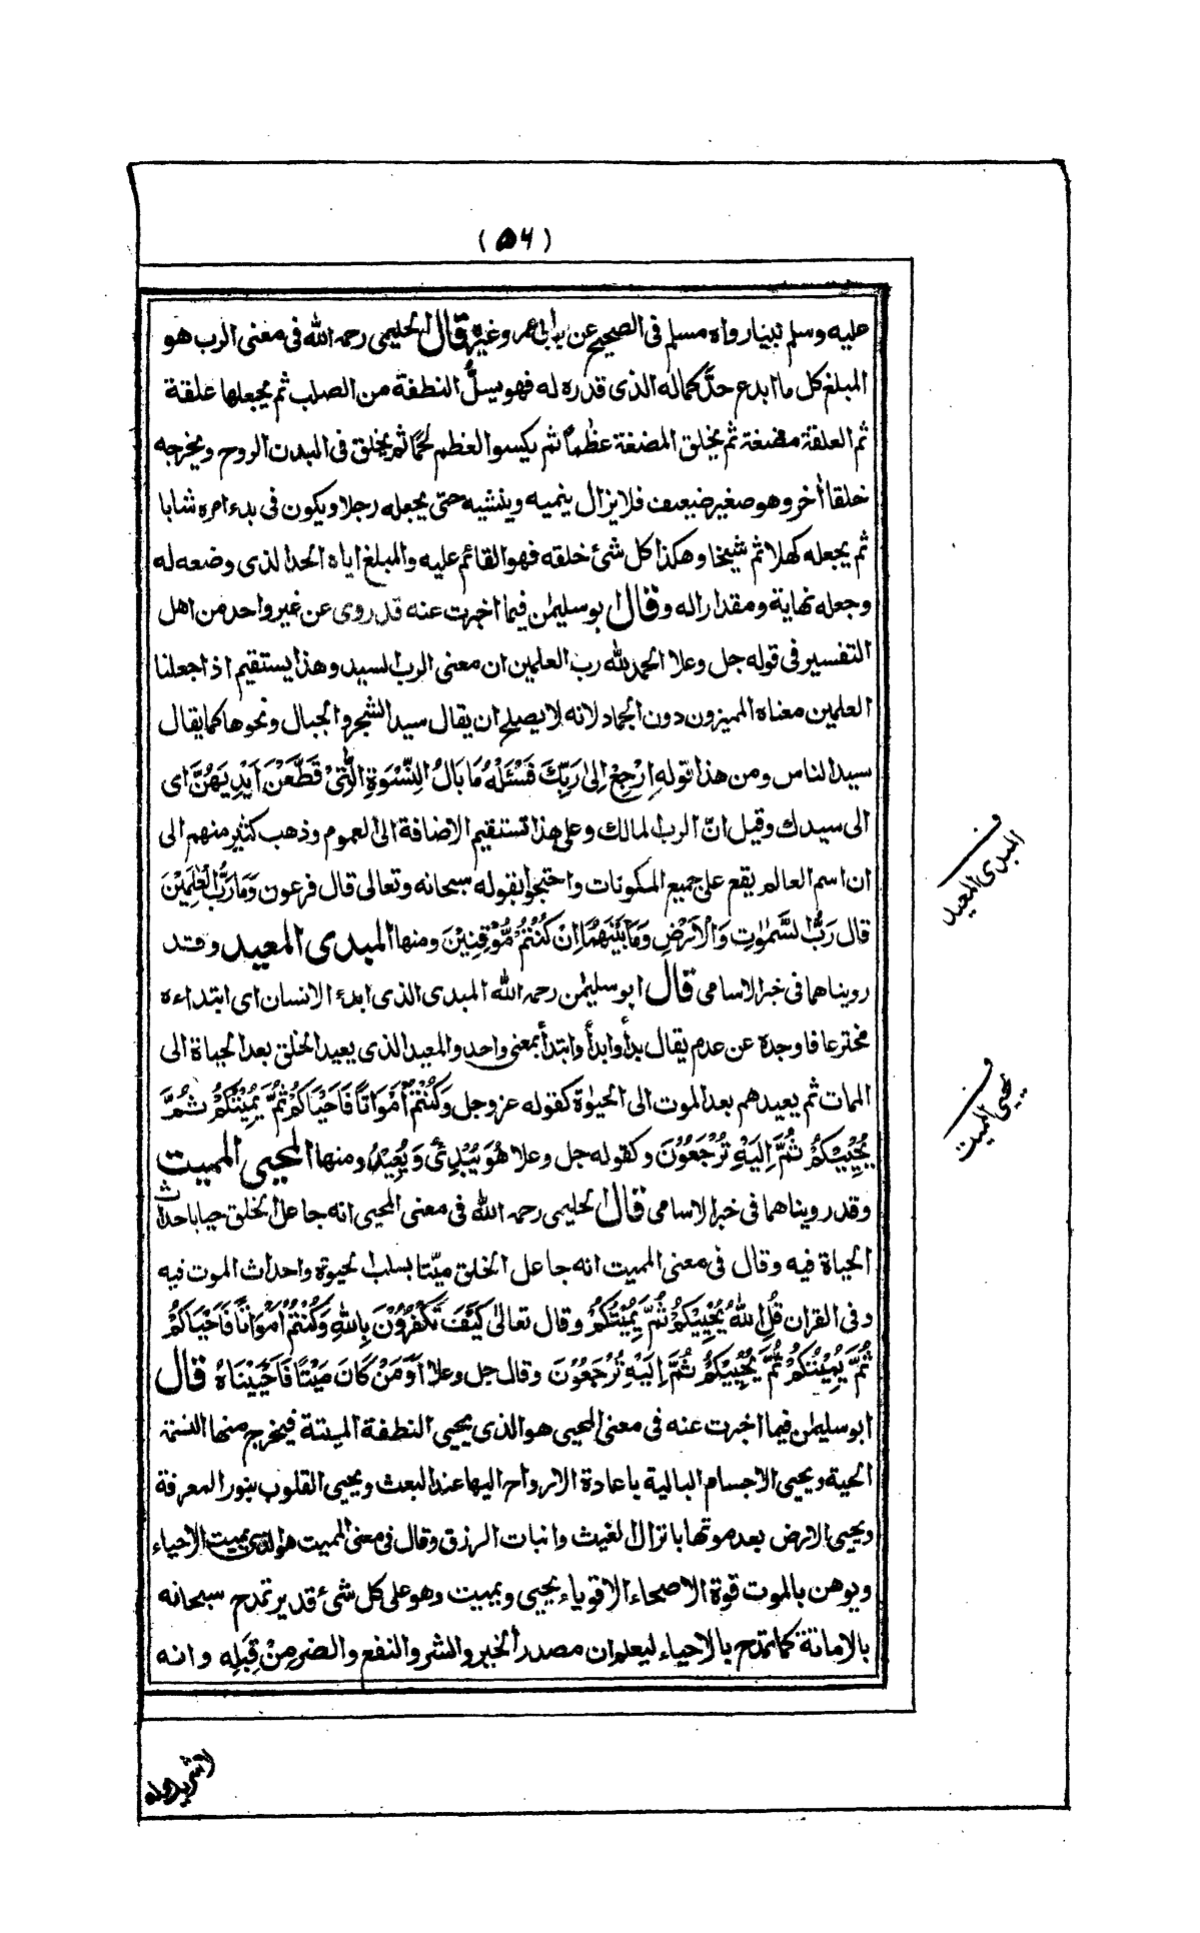 (۵۶)
عليه وسلم نبيا رواه مسلم فى الصحيح عن ابن ابى عمر وغيره قال الحليمى رحمه الله فى معنى الرب هو
المبلغ كل ما ابدع حدَّ كماله الذى قدره له فهو يسلُّ النطفة من الصلب ثم يجعلها علقة
ثم العلقة مضغة ثم يخلق المضغة عظمًا ثم يكسوا العظم لحمًا ثم يخلق فى البدن الروح ويخرجه
خلقا أخر وهو صغير ضعيف فلا يزال ينميه وينشيه حتى يجعله رجلا ويكون فى بدء امره شابا
ثم يجعله كهلا ثم شيخا وهكذا كل شئ خلقه فهو القائم عليه والمبلغ اياه الحد الذى وضعه له
وجعله نهاية ومقدارا له وقال ابو سليمٰن فيما اخبرت عنه قد روى عن غير واحد من اهل
التفسير فى قوله جل وعلا الحمد لله رب العلمين ان معنى الرب السيد وهذا يستقيم اذا جعلنا
العلمين معناه المميزون دون الجماد لانه لا يصلح ان يقال سيد الشجر والجبال ونحوها كما يقال
سيد الناس ومن هذا قوله اِرْجِعْ اِلىٰ رَبِّكَ فَسْئَلْهُ مَا بَالُ النِّسْوَةِ الّٰتِىْ قَطَّعْنَ اَيْدِيَهُنَّ اى
الى سيدك وقيل انّ الرب المالك وعلى هذا تستقيم الاضافة الى العموم وذهب كثير منهم الى
ان اسم العالم يقع على جميع المكونات واحتجوا بقوله سبحانه وتعالى قال فرعون وَمَا رَبُّ الْعٰلَمِيْنَ
قال رَبُّ السَّمٰوٰتِ وَالْاَرْضِ وَمَا بَيْنَهُمَا اِنْ كُنْتُمْ مُّوْقِنِيْنَ ومنها المبدى المعيد وقد
رويناهما فى خبر الاسامى قال ابو سليمٰن رحمه الله المبدى الذى ابدء الانسان اى ابتداءه
مخترعا فاوجده عن عدم يقال بدأ وابدأ وابتدأ بمعنى واحد والمعيد الذى يعيد الخلق بعد الحياة الى
الممات ثم يعيدهم بعد الموت الى الحيوٰة كقوله عز وجل وَكُنْتُمْ اَمْوَاتًا فَاَحْيَاكُمْ ثُمَّ يُمِيْتُكُمْ ثُمَّ
يُحْيِيْكُمْ ثُمَّ اِلَيْهِ تُرْجَعُوْنَ وكقوله جل وعلا هُوَ يُبْدِئُ وَيُعِيْدُ ومنها المحيى المميت
وقد رويناهما فى خبر الاسامى قال الحليمى رحمه الله فى معنى المحيى انه جاعل الخلق حيا باحداث
الحياة فيه وقال فى معنى المميت انه جاعل الخلق ميّتا بسلب الحيوة واحداث الموت فيه
وفى القران قُلِ اللهُ يُحْيِيْكُمْ ثُمَّ يُمِيْتُكُمْ وقال تعالىٰ كَيْفَ تَكْفُرُوْنَ بِاللهِ وَكُنْتُمْ اَمْوَاتًا فَاَحْيَاكُمْ
ثُمَّ يُمِيْتُكُمْ ثُمَّ يُحْيِيْكُمْ ثُمَّ اِلَيْهِ تُرْجَعُوْنَ وقال جل وعلا اَوَمَنْ كَانَ مَيْتًا فَاَحْيَيْنَاهُ قال
ابو سليمٰن فيما اخبرت عنه فى معنى المحيى هو الذى يحيى النطفة الميتة فيخرج منها النسمة
الحية ويحيى الاجسام البالية باعادة الارواح اليها عند البعث ويحيى القلوب بنور المعرفة
ويحيى الارض بعد موتها بانزال الغيث وانبات الرزق وقال فى معنى المميت هو الذى يميت الاحياء
ويوهن بالموت قوة الاصحاء الاقوياء يحيى ويميت وهو على كل شئ قدير تمدح سبحانه
بالاماتة كما تمدح بالاحياء ليعلم ان مصدر الخير والشر والنفع والضر مِنْ قِبَلِه وانه
المبدى المعيد
محيى المميت
لا شريك له